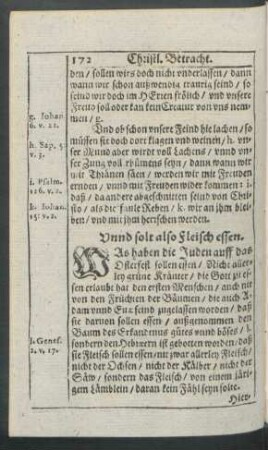 172 Christl. Betracht.
den / sollen wirs doch nicht vnderlassen / dann
wann wir schon außwendig traurig seind / so
seind wir doch im HErren frölich / vnd vnsere
Frewd soll oder kan kein Creatur von vns nem-
men / g.
g. Johan.
6. v. 22.
Vnd ob schon vnsere Feind hie lachen / so
müssen sie doch dort klagen vnd weinen / h. vn-
ser Mund aber wirdt voll Lachens / vnnd vn-
ser Zung voll rhümens seyn / dann wann wir
mit Thränen säen / werden wir mit Freuden
erndten / vnnd mit Freuden wider kommen: i.
daß / da andere abgeschnitten seind von Chri-
sto / als die faule Reben / k. wir an jhm blei-
ben / vnd mit jhm herrschen werden.
h. Sap. 5.
v. 3.
i. Psalm.
126. v. 2.
k. Johan.
15. v. 2.
Vnnd solt also Fleisch essen.
WAs haben die Juden auff das
Osterfest sollen essen / Nicht aller-
ley grüne Kräuter / die Gott zu es-
sen erlaubt hat den ersten Menschen / auch nit
von den Früchten der Bäumen / die auch A-
dam vnnd Eua seind zugelassen worden / daß
sie darvon sollen essen / außgenommen den
Baum des Erkandtnus gutes vnnd böses / l.
sondern den Hebreern ist gebotten worden / daß
sie Fleisch sollen essen / nit zwar allerley Fleisch /
nicht der Ochsen / nicht der Kälber / nicht der
Säw / sondern das Fleisch / von einem järi-
gem Lämblein / daran kein Fähl seyn solte.
l. Genes.
2. v. 17.
Hier-